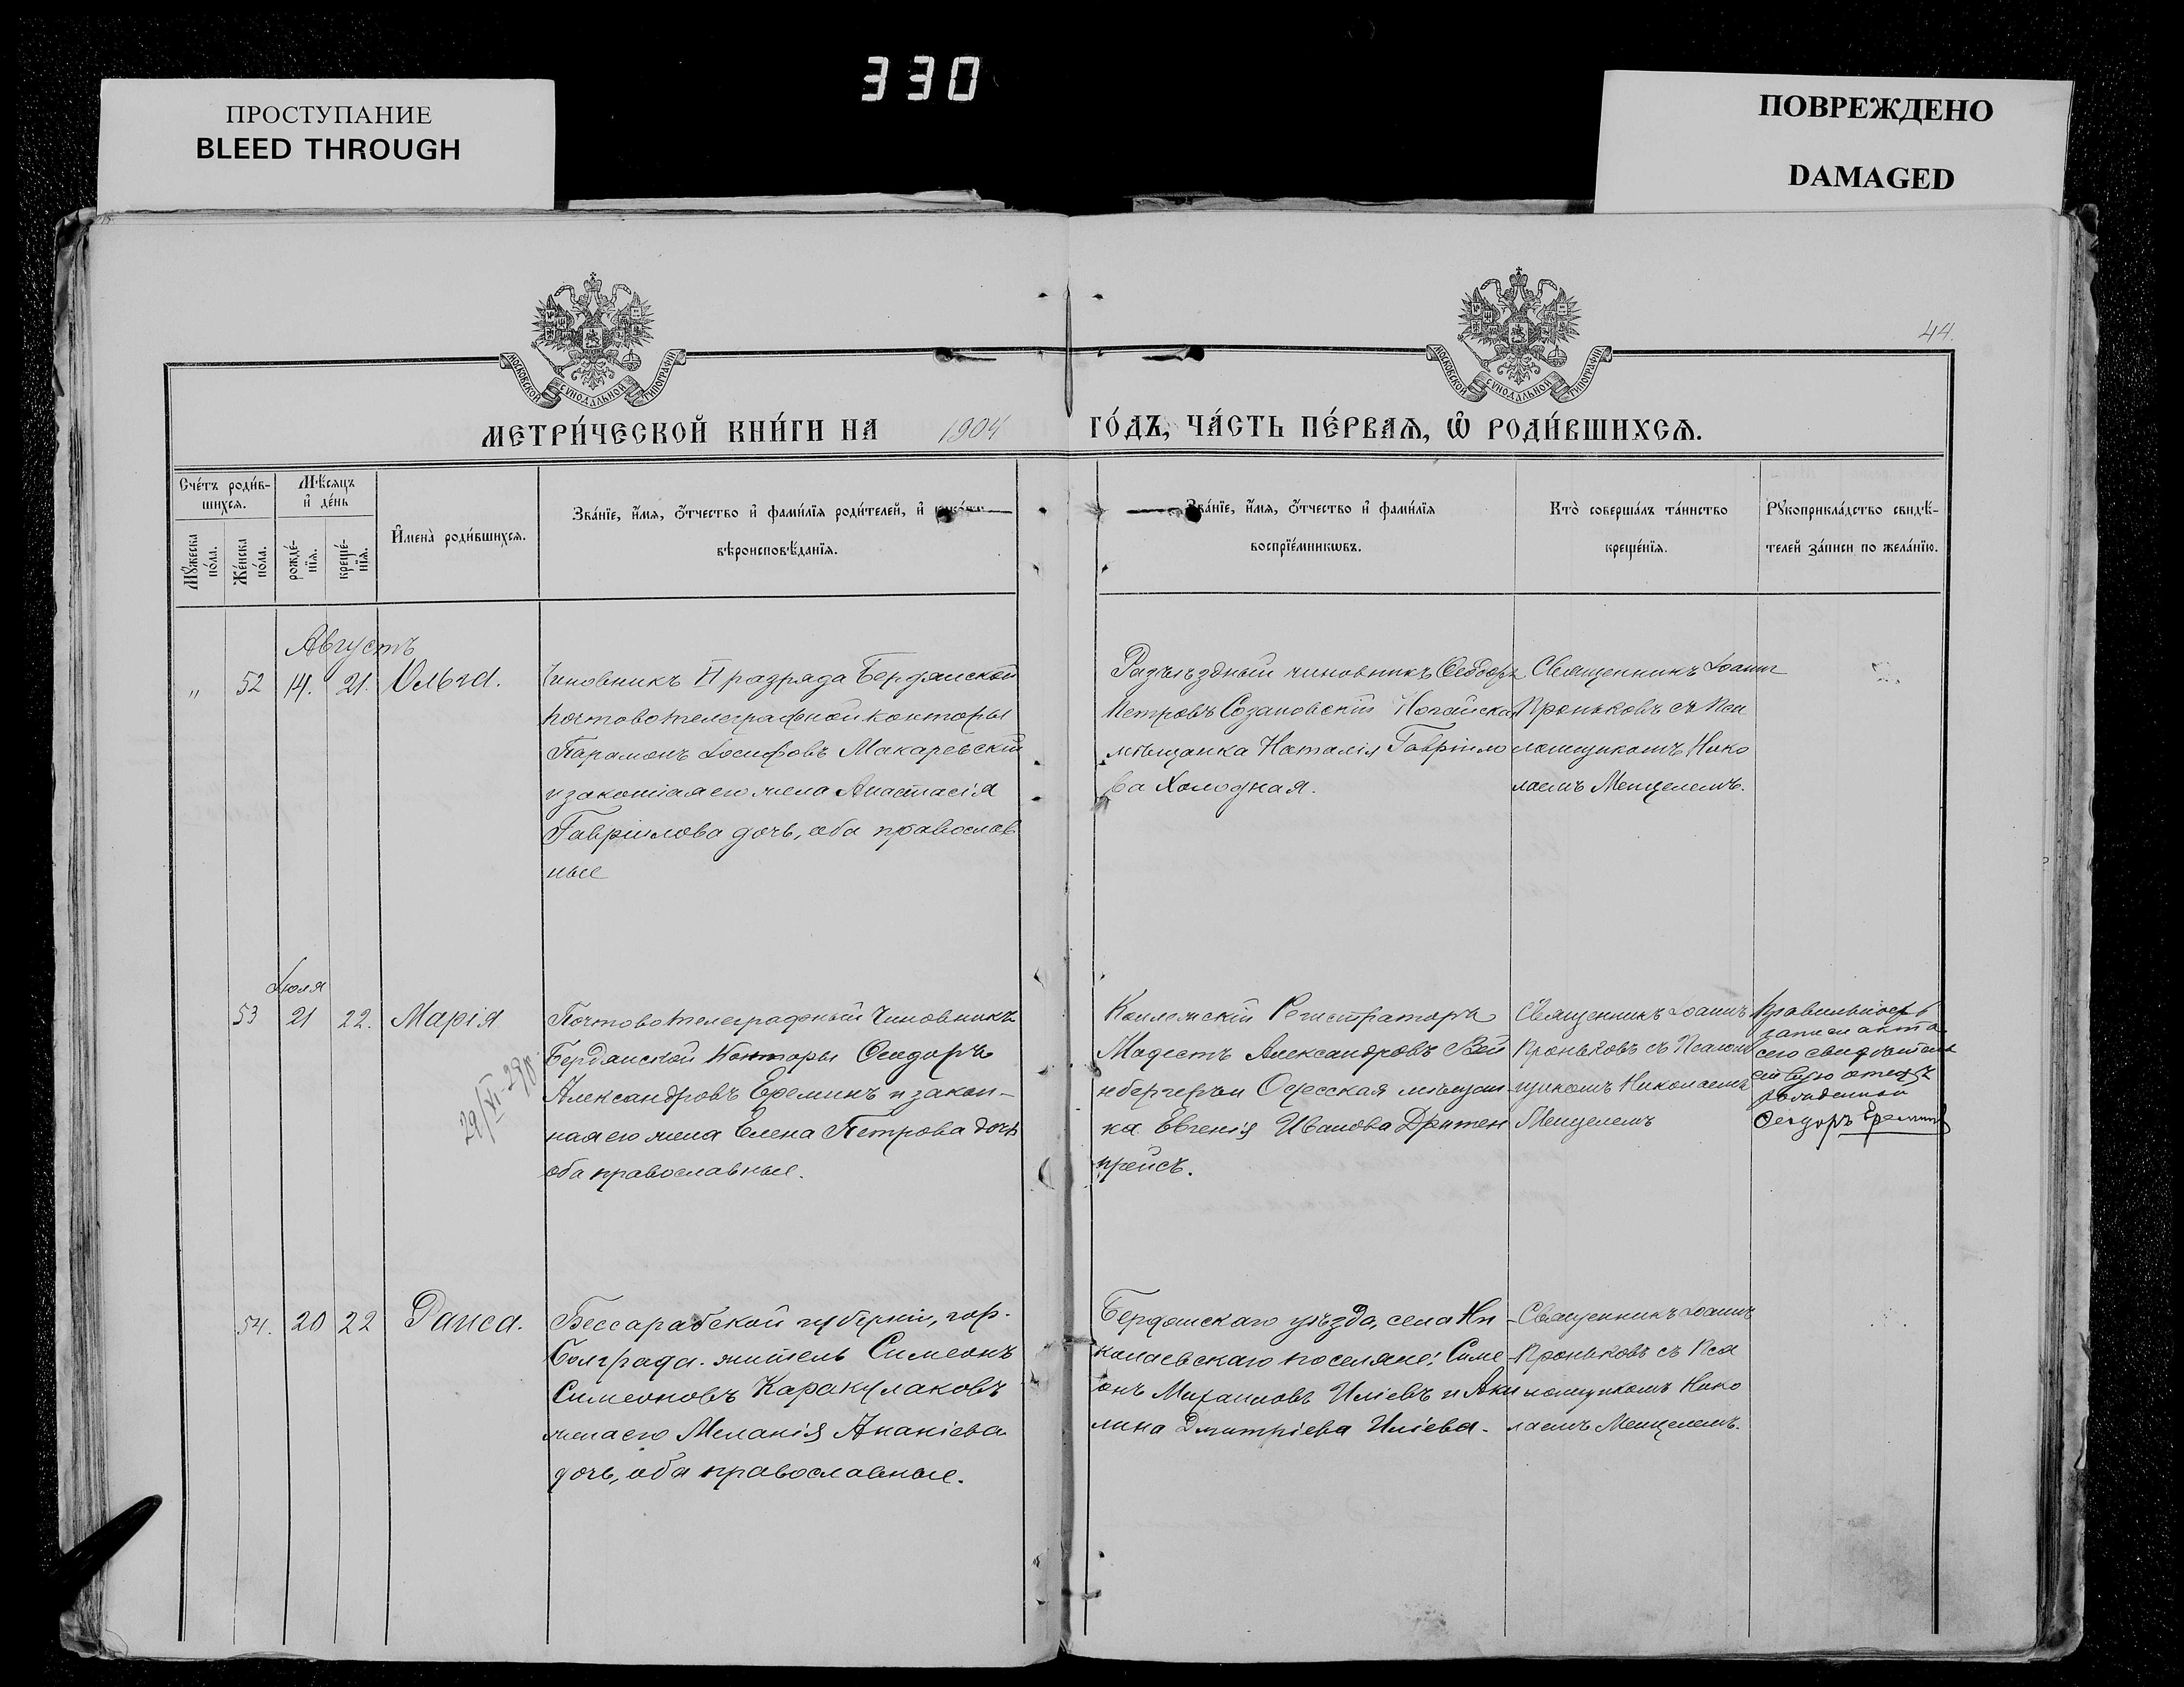 330
ПРОСТУПАНИЕ
BLEED THROUGH
ПОВРЕЖДЕНО
DAMAGED
МОСКОВСКОЙ СѴНОДАЛЬНОЙ ТИПОГРАФІИ
МОСКОВСКОЙ СѴНОДАЛЬНОЙ ТИПОГРАФІИ
44.
МЕТРИ́ЧЕСКОЙ КНИ́ГИ НА 1904 ГО́ДЪ, ЧА́СТЬ ПЕ́РВАѦ, Ѡ҆ РОДИ́ВШИХСѦ.
Сче́тъ роди́в-
шихсѧ.
Мꙋ́жеска
по́ла.
Же́нска
по́ла.
Мѣ́сѧцъ
и҆ де́нь
рожде́-
нїѧ.
креще́-
нїѧ.
И҆мена̀ роди́вшихсѧ.
Зва́нїе, и҆́мѧ, ѻ҆́тчество и҆ фами́лїѧ роди́телей, и҆
вѣроисповѣ́данїѧ.
Зва́нїе, и҆́мѧ, ѻ҆́тчество и҆ фами́лїѧ
воспрїе́мникѡвъ.
Кто̀ соверша́лъ та́инство
креще́нїѧ.
Рꙋкоприкла́дство свидѣ́-
телей за́писи по жела́нїю.
Августъ
„ 52 14. 21. Ольга.
Чиновникъ VI разряда Бердянской
почтовотелеграфной конторы
Парамонъ Іосифовъ Макаревскій
и законная его жена Анастасія
Гавріилова дочь, оба православ
ные
Разъѣздный чиновникъ Ѳеодоръ
Петровъ Созановскій Ногайская
мѣщанка Наталія Гавріило
ва Холодная.
Священникъ Іоаннъ
Проньковъ съ Пса
ломщикомъ Нико
лаемъ Менцелемъ.
Іюля
53 21 22. Марія
29/VI-29
Почтовотелеграфный Чиновникъ
Бердянской Конторы Ѳеодоръ
Александровъ Ереминъ и закон-
ная его жена Елена Петрова дочь
оба православные.
Коллежскій Регистраторъ
Модестъ Александровъ Вей
нбергеръ и Одесская мѣщан
ка Евгенія Иванова Дритен
прейсъ.
Священникъ Іоаннъ
Проньковъ съ Псалом
щикомъ Николаемъ
Менцелемъ
Правильность
записи акта
сего свидѣтель
ствую отецъ
рожденной
Ѳеодоръ Ереминъ
54. 20 22 Раиса.
Бессарабской губерніи, гор.
Болграда. житель Симеонъ
Симеоновъ Каракулаковъ
жена его Меланія Ананіева
дочь, оба православные.
Бердянскаго уѣзда, села Ни
колаевскаго поселяне: Симе
онъ Михаиловъ Иліевъ и Аки
лина Дмитріева Иліева.
Священникъ Іоаннъ
Проньковъ съ Пса
ломщикомъ Нико
лаемъ Менцелемъ.